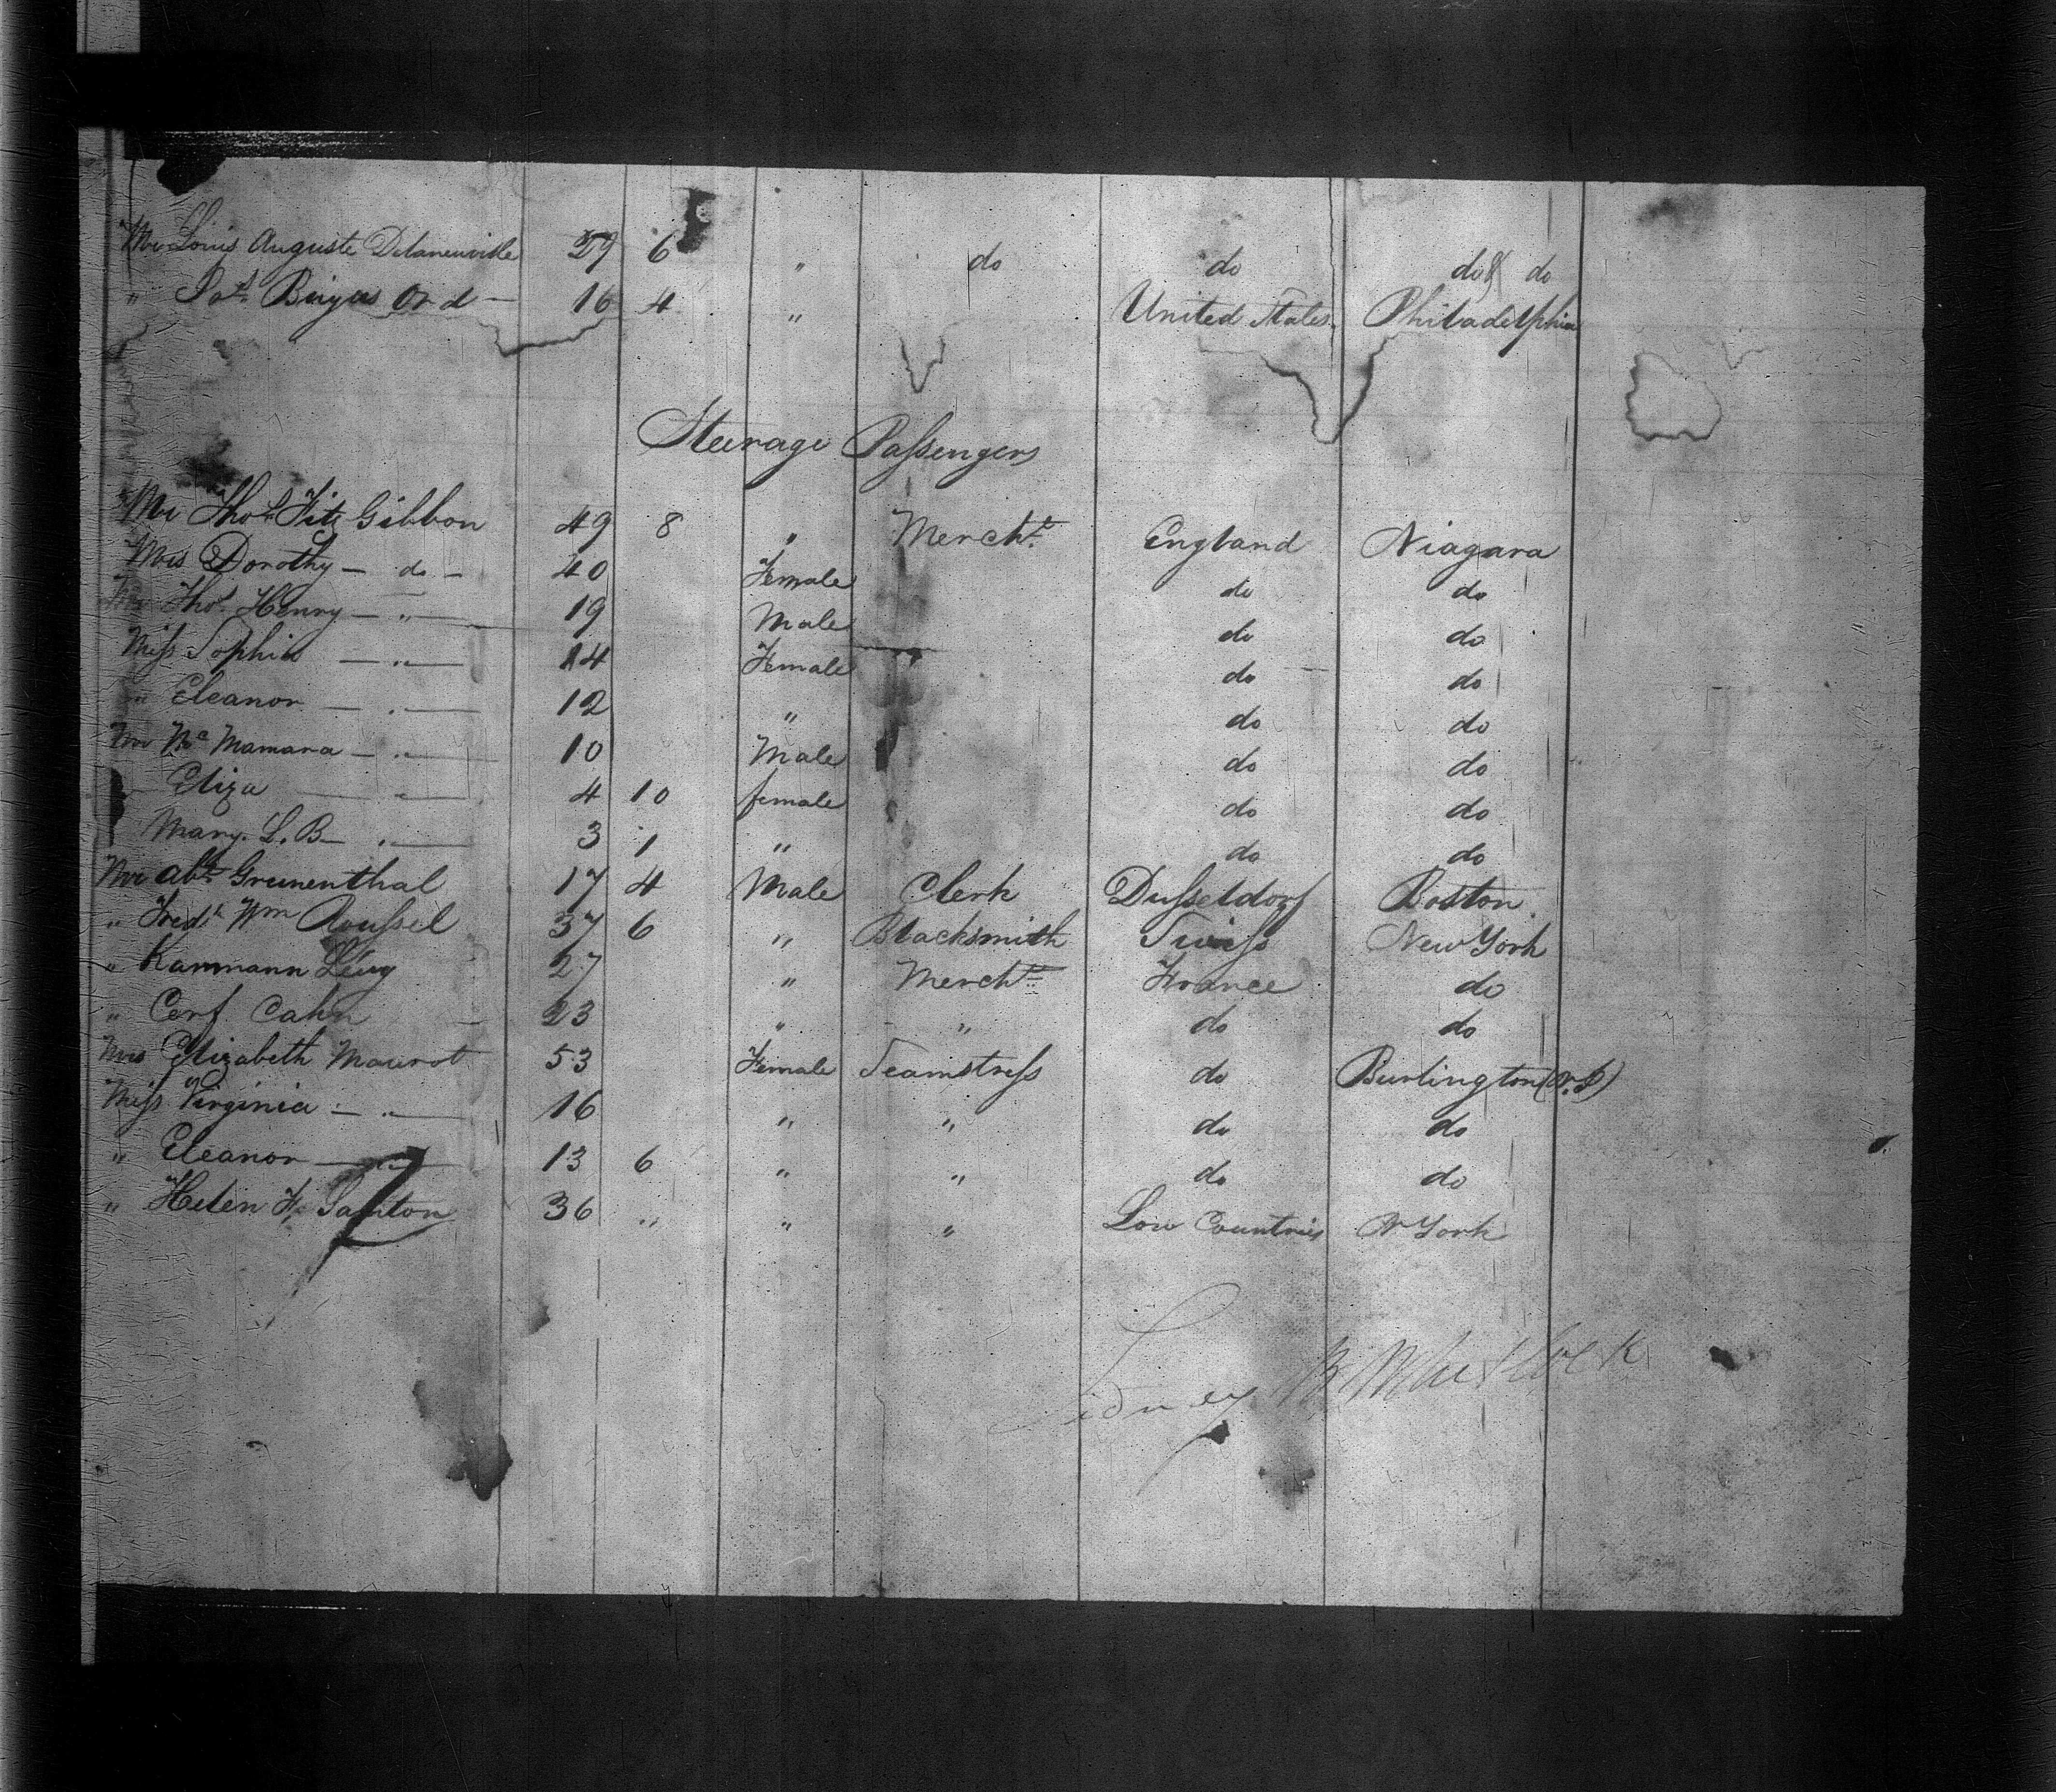 Mr Louis Auguste Delaneuville 29 6 " do do do & do
" Jos. Ord — 16 4 " United States Philadelphia
Steerage Passengers
Mr Thos Fitz Gibbon 49 8 " Mercht. England Niagara
Mrs Dorothy — do — 40 Female do do
Mr Thos Henry — " — 19 Male do do
Miss Sophia — " — 14 Female do do
" Eleanor — " — 12 " do do
Mr Mc Mamara — " — 10 Male do do
Eliza — " — 4 10 female do do
Mary. L. B — " — 3 1 " do do
Mr Abm Grunenthal 17 4 Male Clerk Dusseldorf Boston
" Fredk Wm Roussel 37 6 " Blacksmith Swiss New York
" Kaumann Levy 27 " Mercht France do
" Cerf Cahn — 23 " " do do
Mrs Elizabeth Maurot 53 Female Seamstress do Burlington (N.J)
Miss Virginia — " — 16 " " do do
" Eleanor — " — 13 6 " " do do
" Helen F. 36 " " " Low Countries N York
Sidney B Whitlock